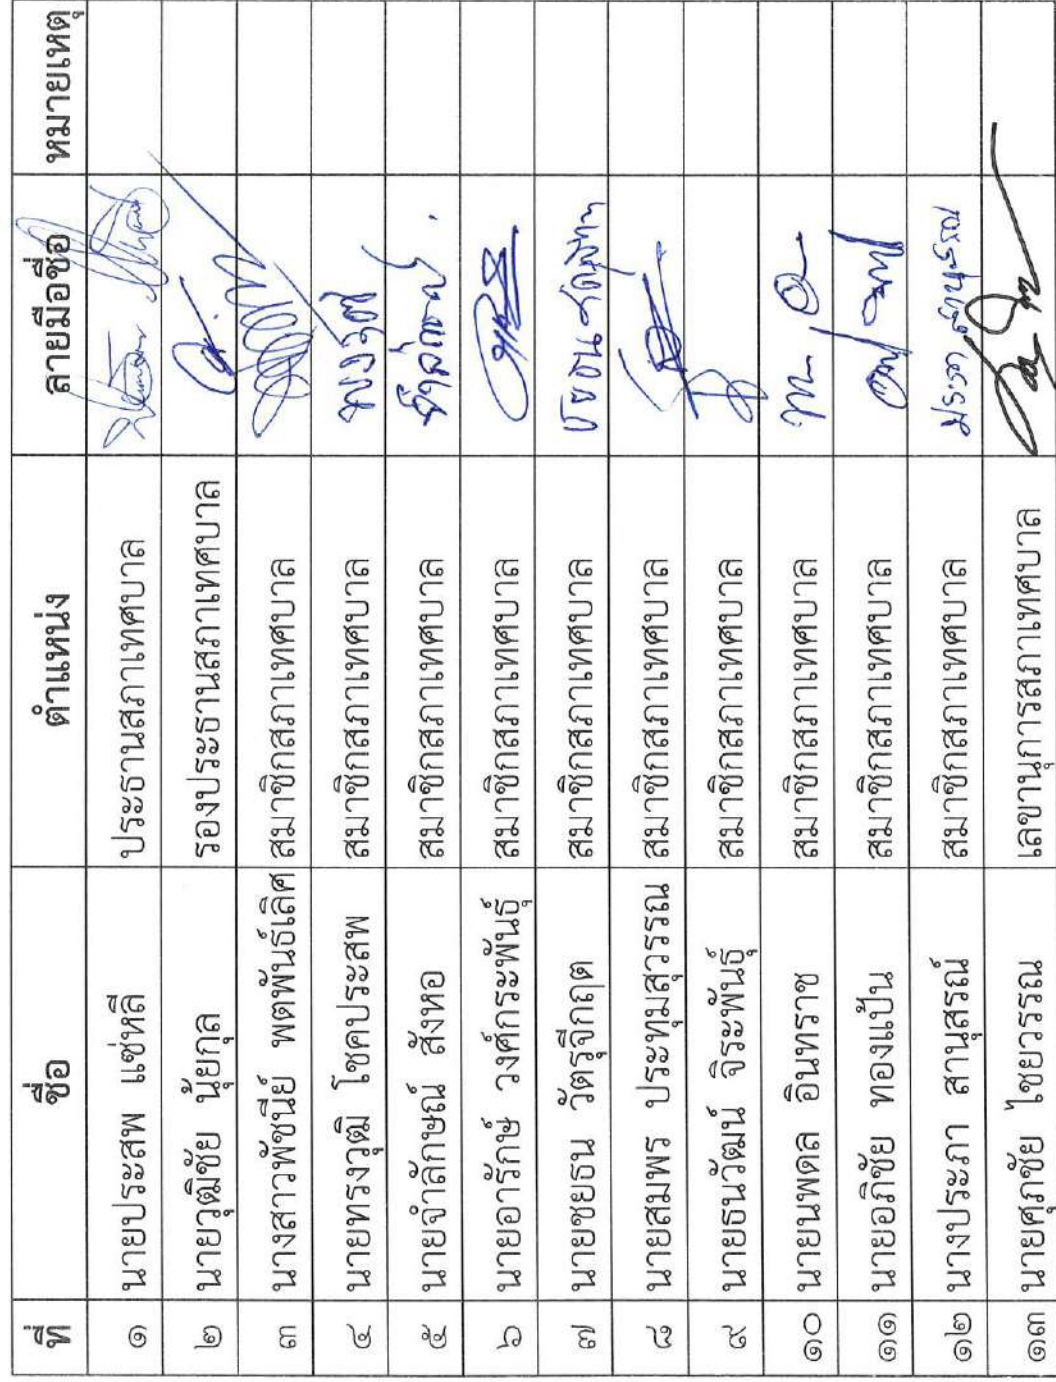 ที่ ชื่อ ตำแหน่ง ลายมือชื่อ หมายเหตุ
๑ นายประสพ แซ่หลี ประธานสภาเทศบาล
๒ นายวุฒิชัย นุ้ยกุล รองประธานสภาเทศบาล
๓ นางสาวพัชนีย์ พตพันธ์เลิศ สมาชิกสภาเทศบาล
๔ นายทรงวุฒิ โชคประสพ สมาชิกสภาเทศบาล ทรงวุฒิ
๕ นายจำลักษณ์ สังหอ สมาชิกสภาเทศบาล
๖ นายอารักษ์ วงศ์กระพันธุ์ สมาชิกสภาเทศบาล
๗ นายชยธน วัตรุจีกฤต สมาชิกสภาเทศบาล
๘ นายสมพร ประทุมสุวรรณ สมาชิกสภาเทศบาล
๙ นายธนวัฒน์ จิระพันธุ์ สมาชิกสภาเทศบาล
๑๐ นายนพดล อินทราช สมาชิกสภาเทศบาล
๑๑ นายอภิชัย ทองแป้น สมาชิกสภาเทศบาล
๑๒ นางประภา สานุสรณ์ สมาชิกสภาเทศบาล
๑๓ นายศุภชัย ไชยวรรณ เลขานุการสภาเทศบาล